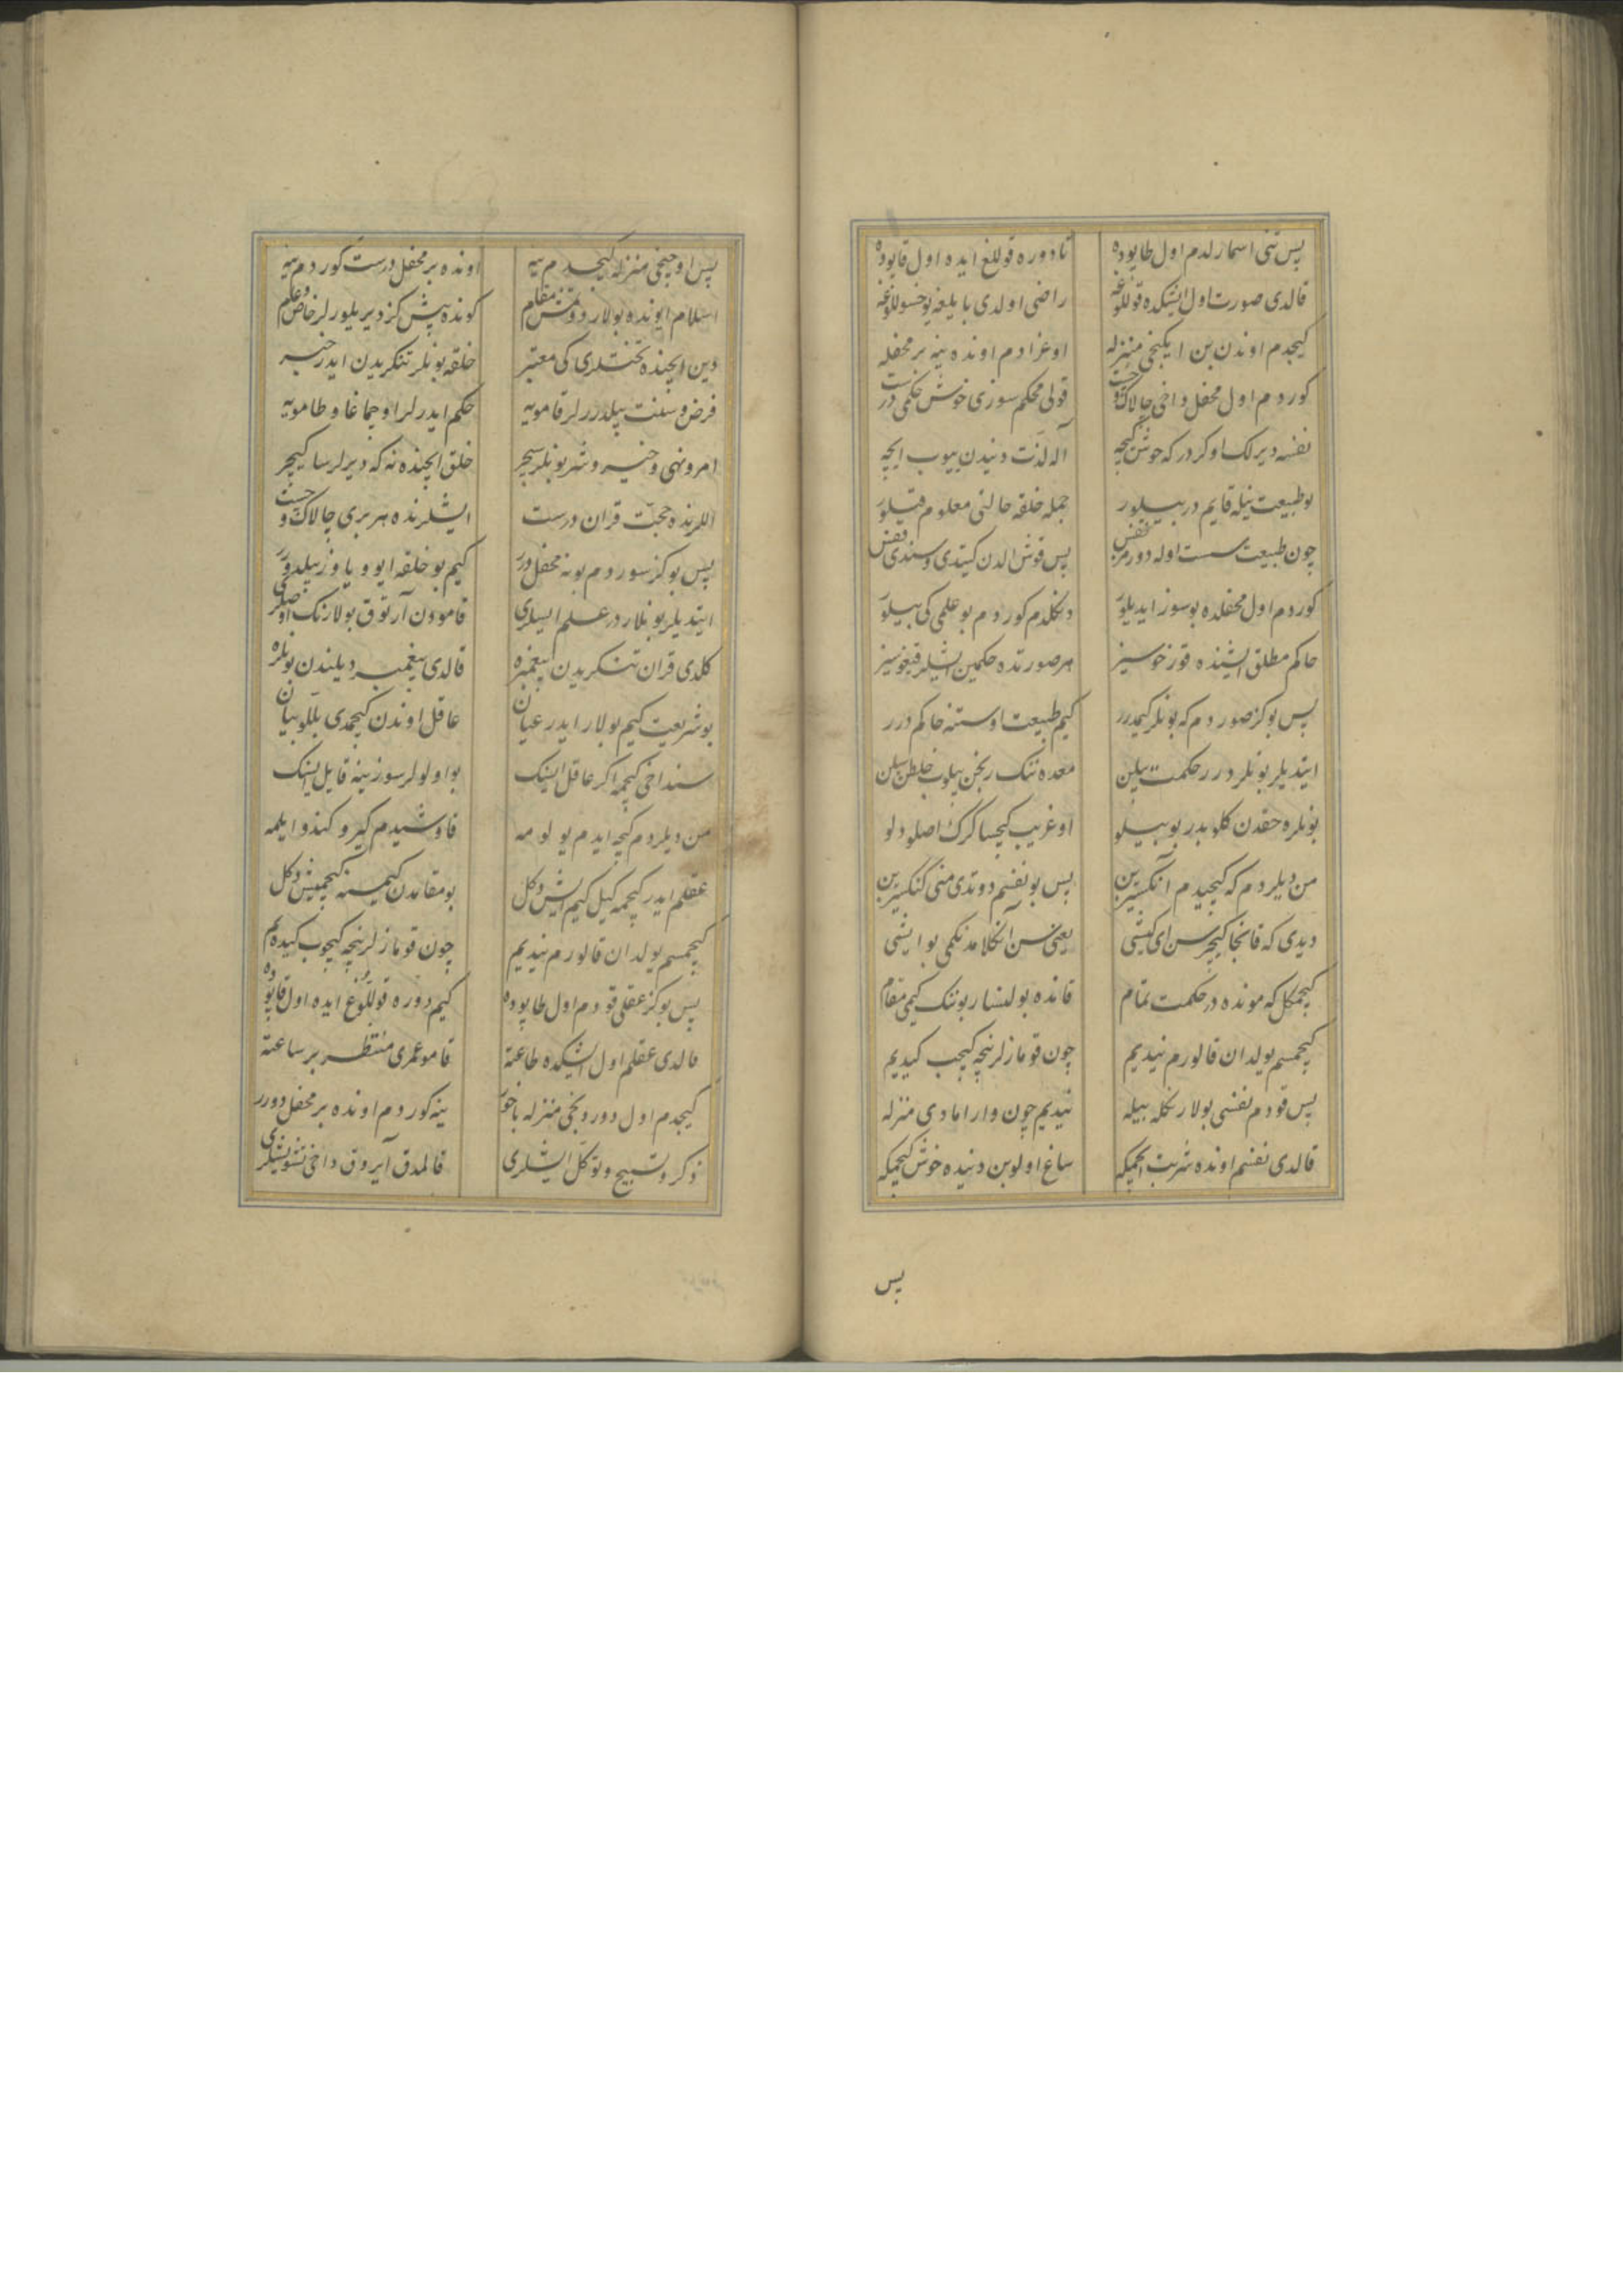 پس تنی اسمارلدم اول طاپوده تا دوره قوللغ ایده اول قاپوده
قالدی صورت اول اشیکده قوللوغه راضی اولدی بایلغه یوخسوللوغه
کیجدم اوندن بن ایکنجی منزله اوغرادم اونده ینه بر محفله
کوردم اول محفل داخی چالاک و چست قولی محکم سوزی خوش حکمی درست
نفسه دیرلک اوکردر که خوش کیچه آله لذت دنیدن ییوب ایچه
بو طبیعت نیله قایم در بیلور جمله خلقه حالنی معلوم قیلور
چون طبیعت سست اوله دورمز نفس پس قوش الدن کیتدی وسندی قفس
کوردم اول محفلده بو سوز ایدیلور دکلدم کوردم بو علمی کی بیلور
حاکم مطلق ایشنده قورخوسیز هر صورتده حکمین ایشلر قیغوسیز
پس بو کز صوردم که بونلر کیمدرر کیم طبیعت اوستنه حاکم درر
ایتدیلر بونلر درر حکمت بیلن معده ننک رنجن بیلوب خلطن سیلن
بونلره حقدن کلوبدر بو بیلو او غریب کیچسا کرک اصلو دلو
من دیلردم که کیچیدم آنکسیزین پس بو نفسم دوتدی منی کنکسیزین
دیدی که قانجا کیچرسن ای کیشی یعنی سن آنکلامدنکمی بو ایشی
کیچمکل که مونده در حکمت تمام قانده بولنسار بوننک کیمی مقام
کیچمسم یولدان قالورم نیدیم چون قومازلر نیچه کیچب کیدیم
پس قودم نفسی بولارنکله بیله نیدیم چون وارامادی منزله
قالدی نفسم اونده شربت ایچمیکه ساغ اولوبن دنیده خوش کیچمیکه
پس
پس اوچنجی منزله کیچدم ینه اونده بر محفل درست کوردم ینه
اسلام ایونده بولار دوتمش مقام کونده پیش کز دیریلورلر خاص و عام
دین ایچنده تختلری کی معتبر خلقه بونلر تنکریدن ایدر خبر
فرض و سنت بیلدررلر قامویه حکم ایدرلر اوچماغا و طامویه
امر و نهی و خیر و شر بونلر سچر خلق ایچنده نه که دیرلرسا کیچر
اللرنده حجت قران درست ایشلرنده هر بری چالاک و چست
پس بو کز سوردم بو نه محفل درر کیم بو خلقه ایو و یاوز بیلدورر
ایتدیلر بونلار در علم ایسلری قامودن آرتوق بولارنک اوصلری
کلدی قران تنکریدن پیغمبره قالدی پیغمبر دیلندن بونلره
بو شریعت کیم بولار ایدر عیان عاقل اوندن کیچمدی بللو بیان
سن داخی کیچمه اکر عاقل ایسنک بو اولولر سوزینه قایل ایسنک
من دیلردم کیچه ایدم یولومه قاوشیدم کیرو کندو ایلمه
عقلم ایدر کیچمه کیل کیم ایش دکل بو مقامدن کیمسنه کیچمیش دکل
کیچمسم یولدان قالورم نیدیم چون قومازلر نیچه کیچوب کیدیم
پس بو کز عقلی قودم اول طاپوده کیم دوره قوللوغ ایده اول قاپوده
قالدی عقلم اول اشیکده طاعته قامو عمری منتظر بر ساعته
کیچدم اول دوردنجی منزله باخور ینه کوردم اونده بر محفل دورر
ذکر و تسبیح و توکل ایشلری قالمدق آیروق داخی تشویشلری